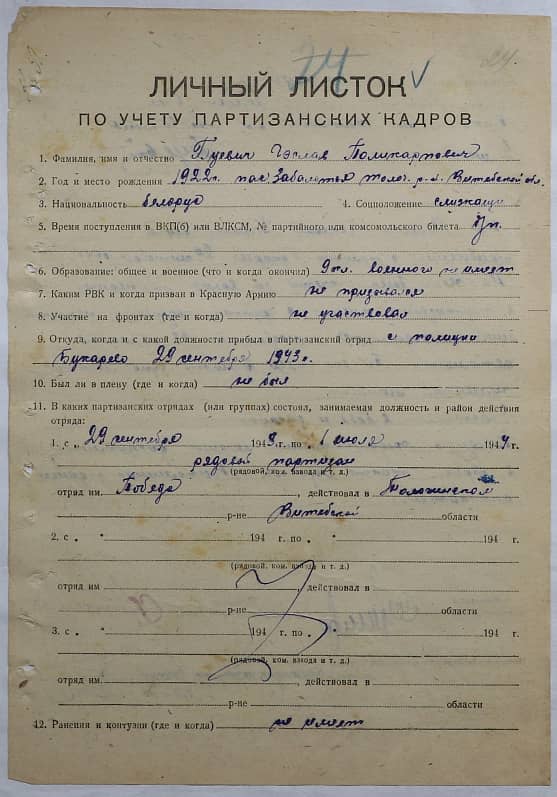 24
ЛИЧНЫЙ ЛИСТОК
ПО УЧЕТУ ПАРТИЗАНСКИХ КАДРОВ
1. Фамилия, имя и отчество Гуевич Чэслав Поликарпович
2. Год и место рождения 1922г. пос. Забалотья толоч. р-н. Витебской обл.
3. Национальность беларус 4. Соцположение служащи
5. Время поступления в ВКП(б) или ВЛКСМ, № партийного или комсомольского билета
6. Образование: общее и военное (что и когда окончил) 9 кл. военного не имеет
7. Каким РВК и когда призван в Красную Армию не призывался
8. Участие на фронтах (где и когда) не участвовал
9. Откуда, когда и с какой должности прибыл в партизанский отряд с полиции
29 сентября 1943г.
10. Был ли в плену (где и когда) не был
11. В каких партизанских отрядах (или группах) состоял, занимаемая должность и район действия
отряда:
1. с „29 сентября 1943 г. по „1 июля 1944 г.
рядовой партизан
(рядовой, ком. взвода и т. д.)
отряд им Победа, действовал в Толочинском
р-не Витебской области
2. с „ “ 194 г. по „ “ 194 г.
(рядовой, ком. взвода и т. д.)
отряд им , действовал в
р-не области
3. с „ “ 194 г. по „ “ 194 г.
(рядовой, ком. взвода и т. д.)
отряд им , действовал в
р-не области
12. Ранения и контузии (где и когда) не имеет